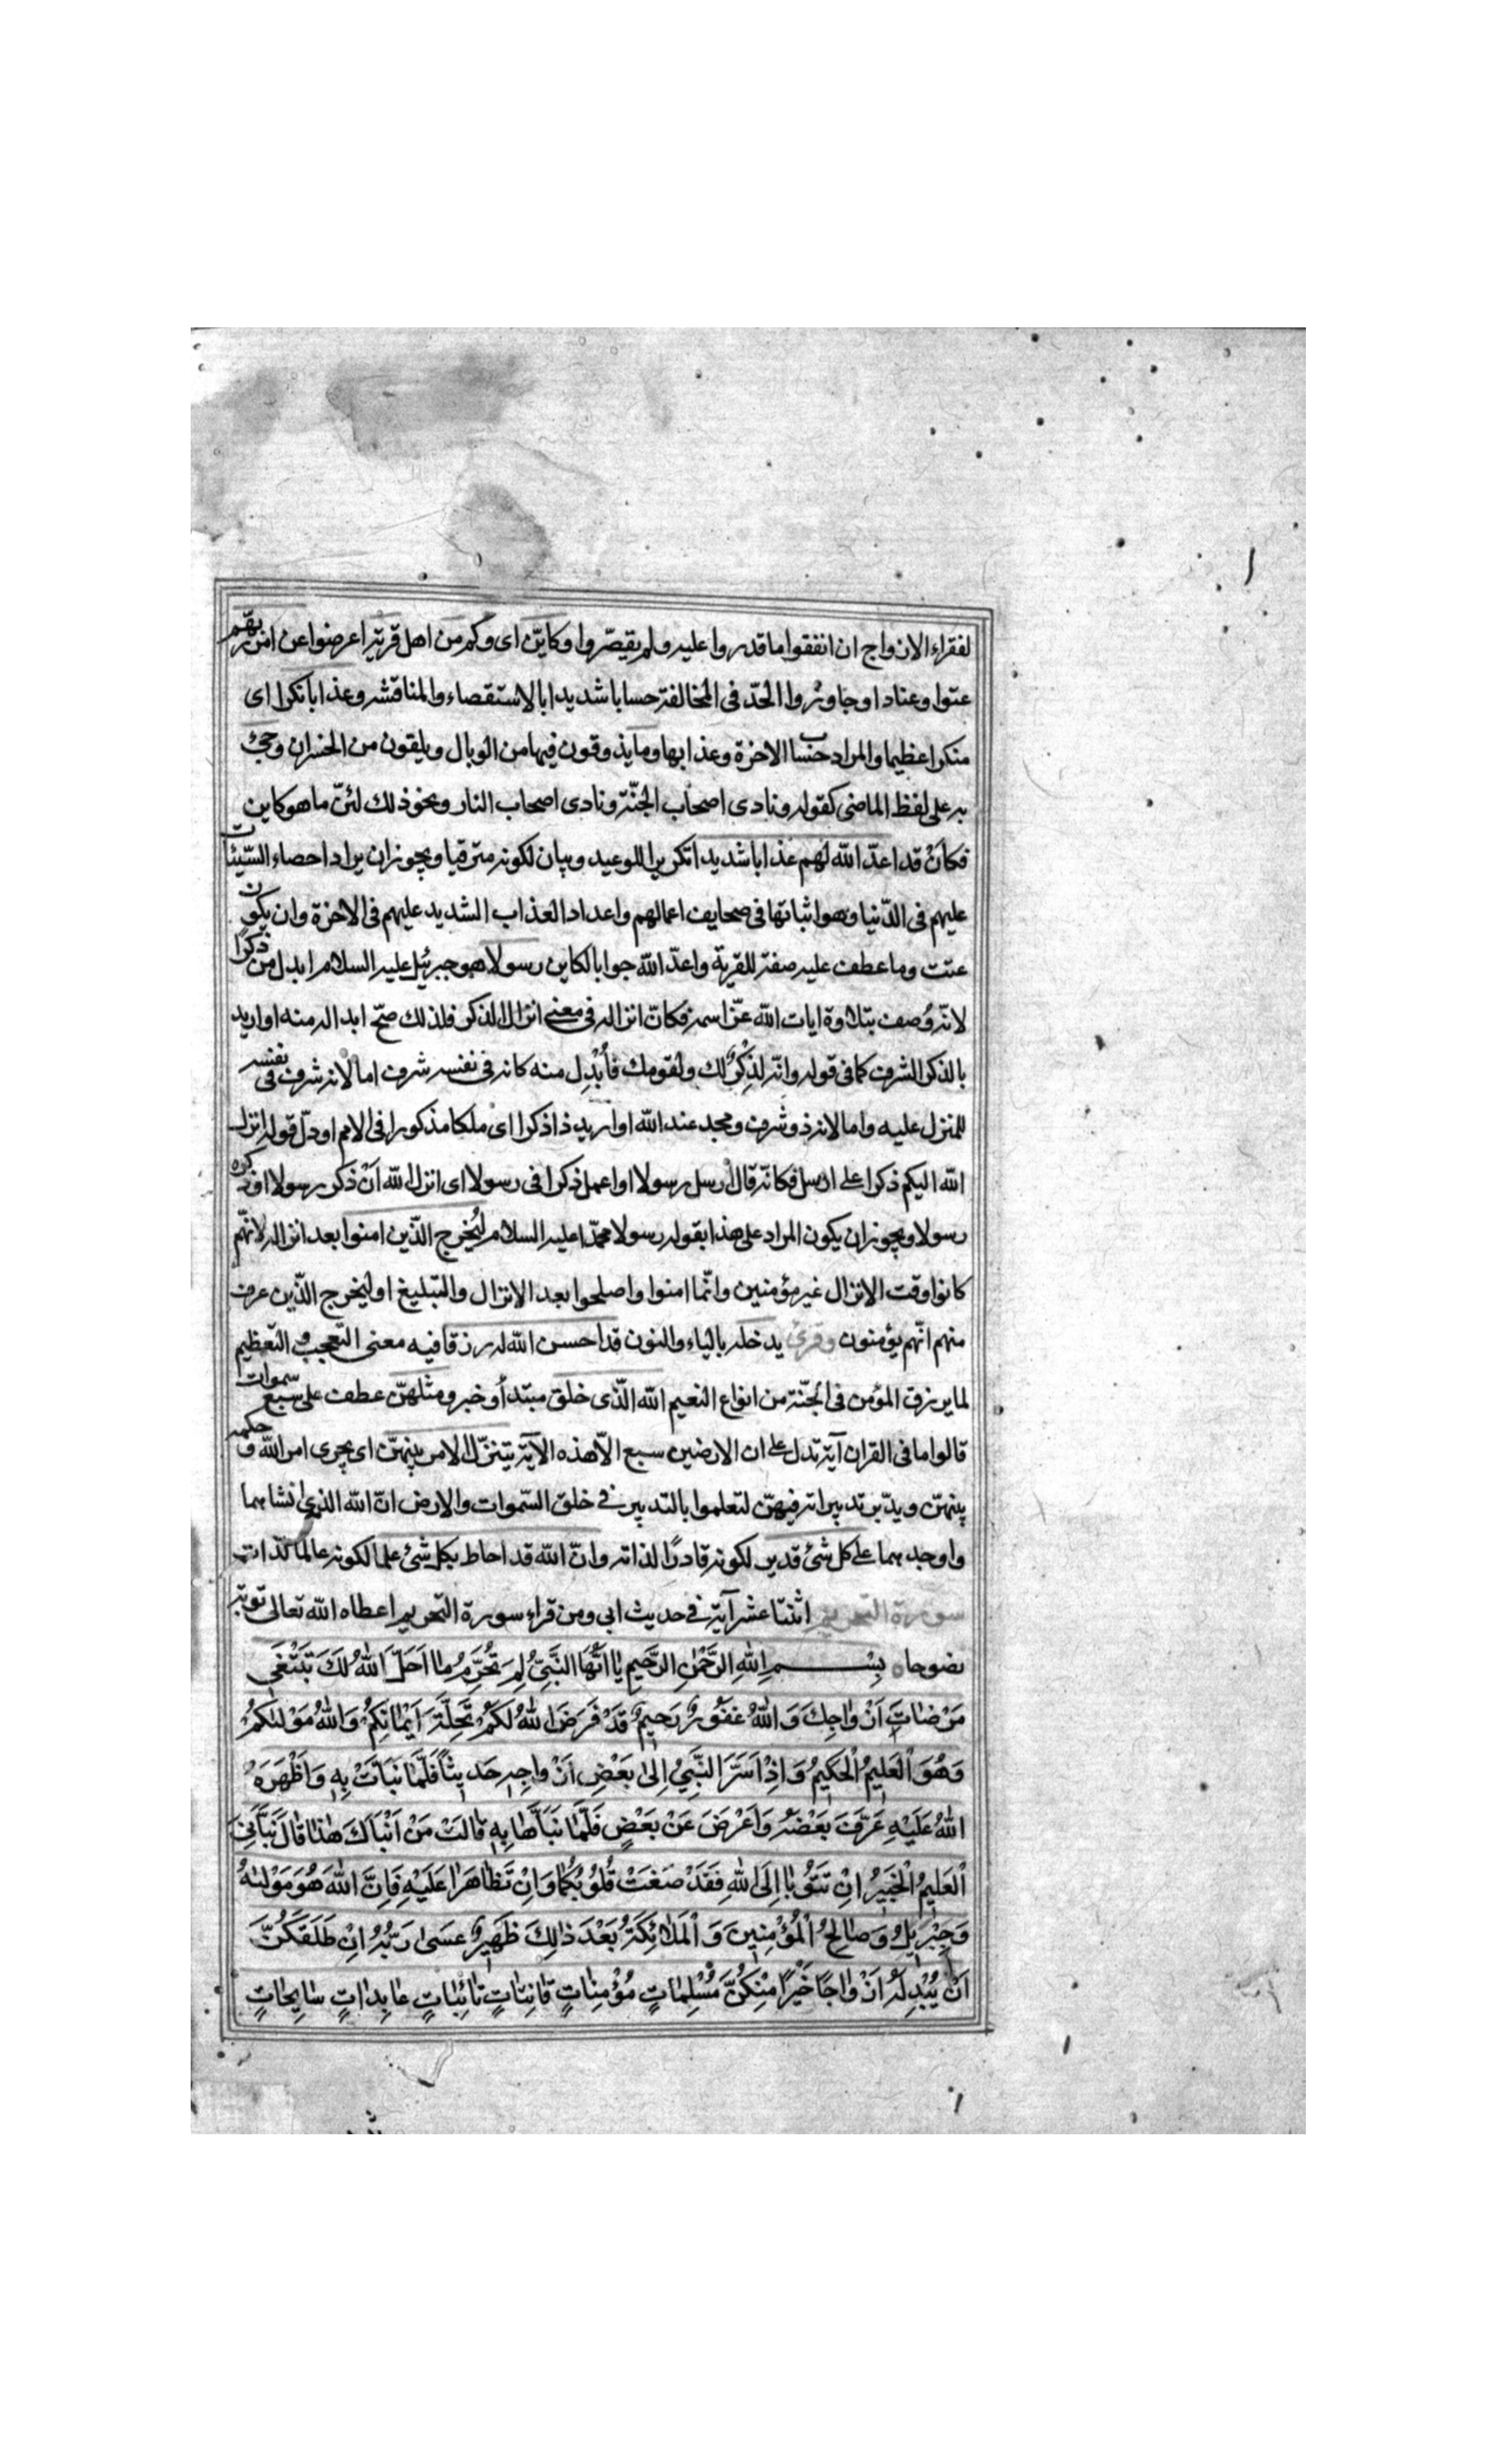 لفقراء الازواج ان انفقوا ما قدروا عليه ولم يقصّروا وكايّن اى وكم من اهل قرية اعرضوا عن امر ربّهم
عتوا وعنادا وجاوزوا الحدّ فى المخالفة حسابا شديدا بالاستقصاء والمناقشه وعذابا نكرا اى
منكرا عظيما والمراد حساب الاخرة وعذابها وما يذوقون فيها من الوبال ويلقون من الخسران وجئ
به على لفظ الماضى كقوله ونادى اصحاب الجنّة ونادى اصحاب النار ونحو ذلك لئنّ ما هو كاين
فكأن قد اعدّ الله لهم عذابا شديدا تكريرا للوعيد وبيان لكونه مترقبا ويجوز ان يراد احصاء السّيئات
عليهم فى الدّنيا وهو اثباتها فى صحايف اعمالهم واعداد العذاب الشديد عليهم فى الاخرة وان يكون
عتت وما عطف عليه صفة للقرية واعدّ الله جوابا لكاين رسولا هو جبرئيل عليه السلام ابدل من ذكرا
لانّه وُصف بتلاوة ايات الله عزّ اسمه فكانّ انزاله فى معنى انزال الذكر فلذلك صحّ ابداله منه او اريد
بالذكر الشرف كما فى قوله وانّه لذِكْرٌ لك ولقومك فأُبْدِل منه كانه فى نفسه شرف اما لانه شرف فى نفسه
للمنزل عليه واما لانه ذو شرف ومجد عند الله او اريد ذا ذكرا اى ملكا مذكورا فى الامم او دلّ قوله انزل
الله اليكم ذكرا على ارسل فكانّه قال ارسل رسولا او اعمل ذكرا فى رسولا اى انزل الله أنْ ذكر رسولا او ذكره
رسولا ويجوز ان يكون المراد على هذا بقوله رسولا محمّدا عليه السلام ليُخرج الّذين امنوا بعد انزاله لانّهم
كانوا وقت الانزال غير مؤمنين وانّما امنوا واصلحوا بعد الانزال والتبليغ او ليخرج الّذين عرف
منهم انّهم يؤمنون وقرئ يدخله بالياء والنون قد احسن الله له رزقا فيه معنى التعجب والتعظيم
لما يرزق المؤمن فى الجنّة من انواع النعيم الله الّذى خلق مبتدأ وخبر ومثلهنّ عطف على سبع سموات
قالوا ما فى القران آية تدل على ان الارضين سبع الّا هذه الآية يتنزّل الامر بينهنّ اى يجرى امر الله و حكمه
بينهنّ ويدّبر تدبيراته فيهنّ لتعلموا بالتدبير فى خلق السّموات والارض انّ الله الذى انشاهما
واوجدهما على كل شئ قدير لكونه قادرًا لذاته وانّ الله قد احاط بكل شئ علما لكونه عالما لذاته
سورة التحريم اثنتا عشر آية فى حديث ابى ومن قراء سورة التحريم اعطاه الله تعالى توبة
نصوحا بِسْمِ اللهِ الرَّحْمٰنِ الرَّحيمِ يٰا اَيُّهَا النَّبِىُّ لِمَ تُحَرِّمُ مٰا اَحَلَّ اللهُ لَكَ تَبْتَغى
مَرْضٰاتَ اَزْوٰاجِكَ وَاللهُ غَفُورٌ رَحيمٌ قَدْ فَرَضَ اللهُ لَكُمْ تَحِلَّةَ اَيْمٰانِكُمْ وَاللهُ مَوْلٰيكُمْ
وَهُوَ الْعَليمُ الْحَكيمُ وَاِذْ اَسَرَّ النَّبِىُّ اِلىٰ بَعْضِ اَزْوٰاجِهِ حَديثاً فَلَمّٰا نَبَّاَتْ بِهِ وَاَظْهَرَهُ
اللهُ عَلَيْهِ عَرَّفَ بَعْضَهُ وَاَعْرَضَ عَنْ بَعْضٍ فَلَمّٰا نَبَّاَهٰا بِهِ قٰالَتْ مَنْ اَنْبَاَكَ هٰذٰا قٰالَ نَبَّاَنِىَ
الْعَليمُ الْخَبيرُ اِنْ تَتُوبٰا اِلَى اللهِ فَقَدْ صَغَتْ قُلُوبُكُمٰا وَاِنْ تَظٰاهَرٰا عَلَيْهِ فَاِنَّ اللهَ هُوَ مَوْلٰيهُ
وَجِبْريلُ وَصٰالِحُ الْمُؤْمِنينَ وَالْمَلٰائِكَةُ بَعْدَ ذٰلِكَ ظَهيرٌ عَسىٰ رَبُّهُ اِنْ طَلَّقَكُنَّ
اَنْ يُبْدِلَهُ اَزْوٰاجًا خَيْرًا مِنْكُنَّ مُسْلِمٰاتٍ مُؤْمِنٰاتٍ قٰانِتٰاتٍ تٰائِبٰاتٍ عٰابِدٰاتٍ سٰايِحٰاتٍ